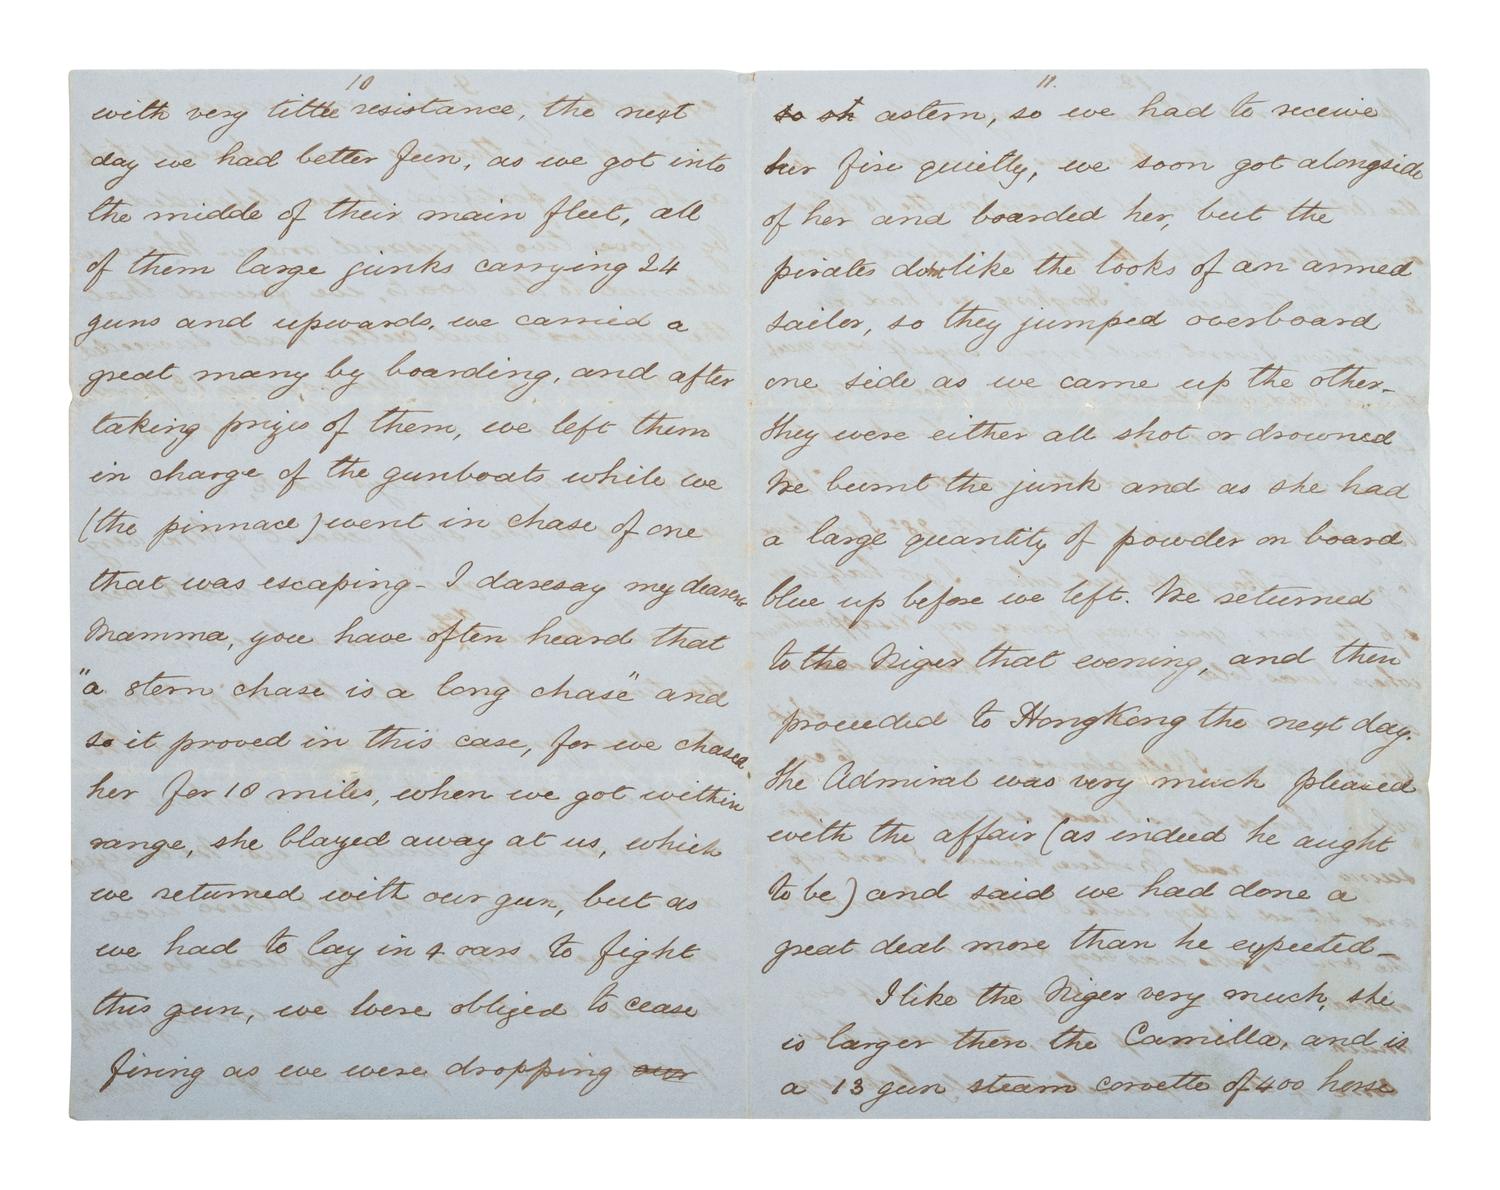 10
with very little resistance, the next
day we had better fun, as we got into
the midde of their main fleet, all
of them large junks carrying 24
guns and upwards. we carried a
great many by boarding, and after
taking prizes of them, we left them
in charge of the gunboats while we
(the pinnace) went in chase of one
that was escaping - I daresay my dearest
Mamma, you have often heard that
"a stern chase is a long chase" and
so it proved in this case, for we chased
her for 18 miles, when we got within
range, she blazed away at us, which
we returned with our gun, but as
we had to lay in 4 oars to fight
this gun, we were obliged to cease
firing as we were dropping our
11.
so sh astern, so we had to receive
her fire quietly, we soon got alongside
of her and boarded her, but the
pirates didn't like the looks of an armed
sailor, so they jumped overboard
one side as we came up the other -
they were either all shot or drowned
We burnt the junk and as she had
a large quantity of powder on board
blue up before we left. We returned
to the Niger that evening, and then
proceeded to HongKong the next day.
The Admiral was very much pleased
with the affair (as indeed he aught
to be) and said we had done a
great deal more than he expected -
I like the Niger very much, she
is larger then the Camilla, and is
a 13 gun steam corvette of 400 horse